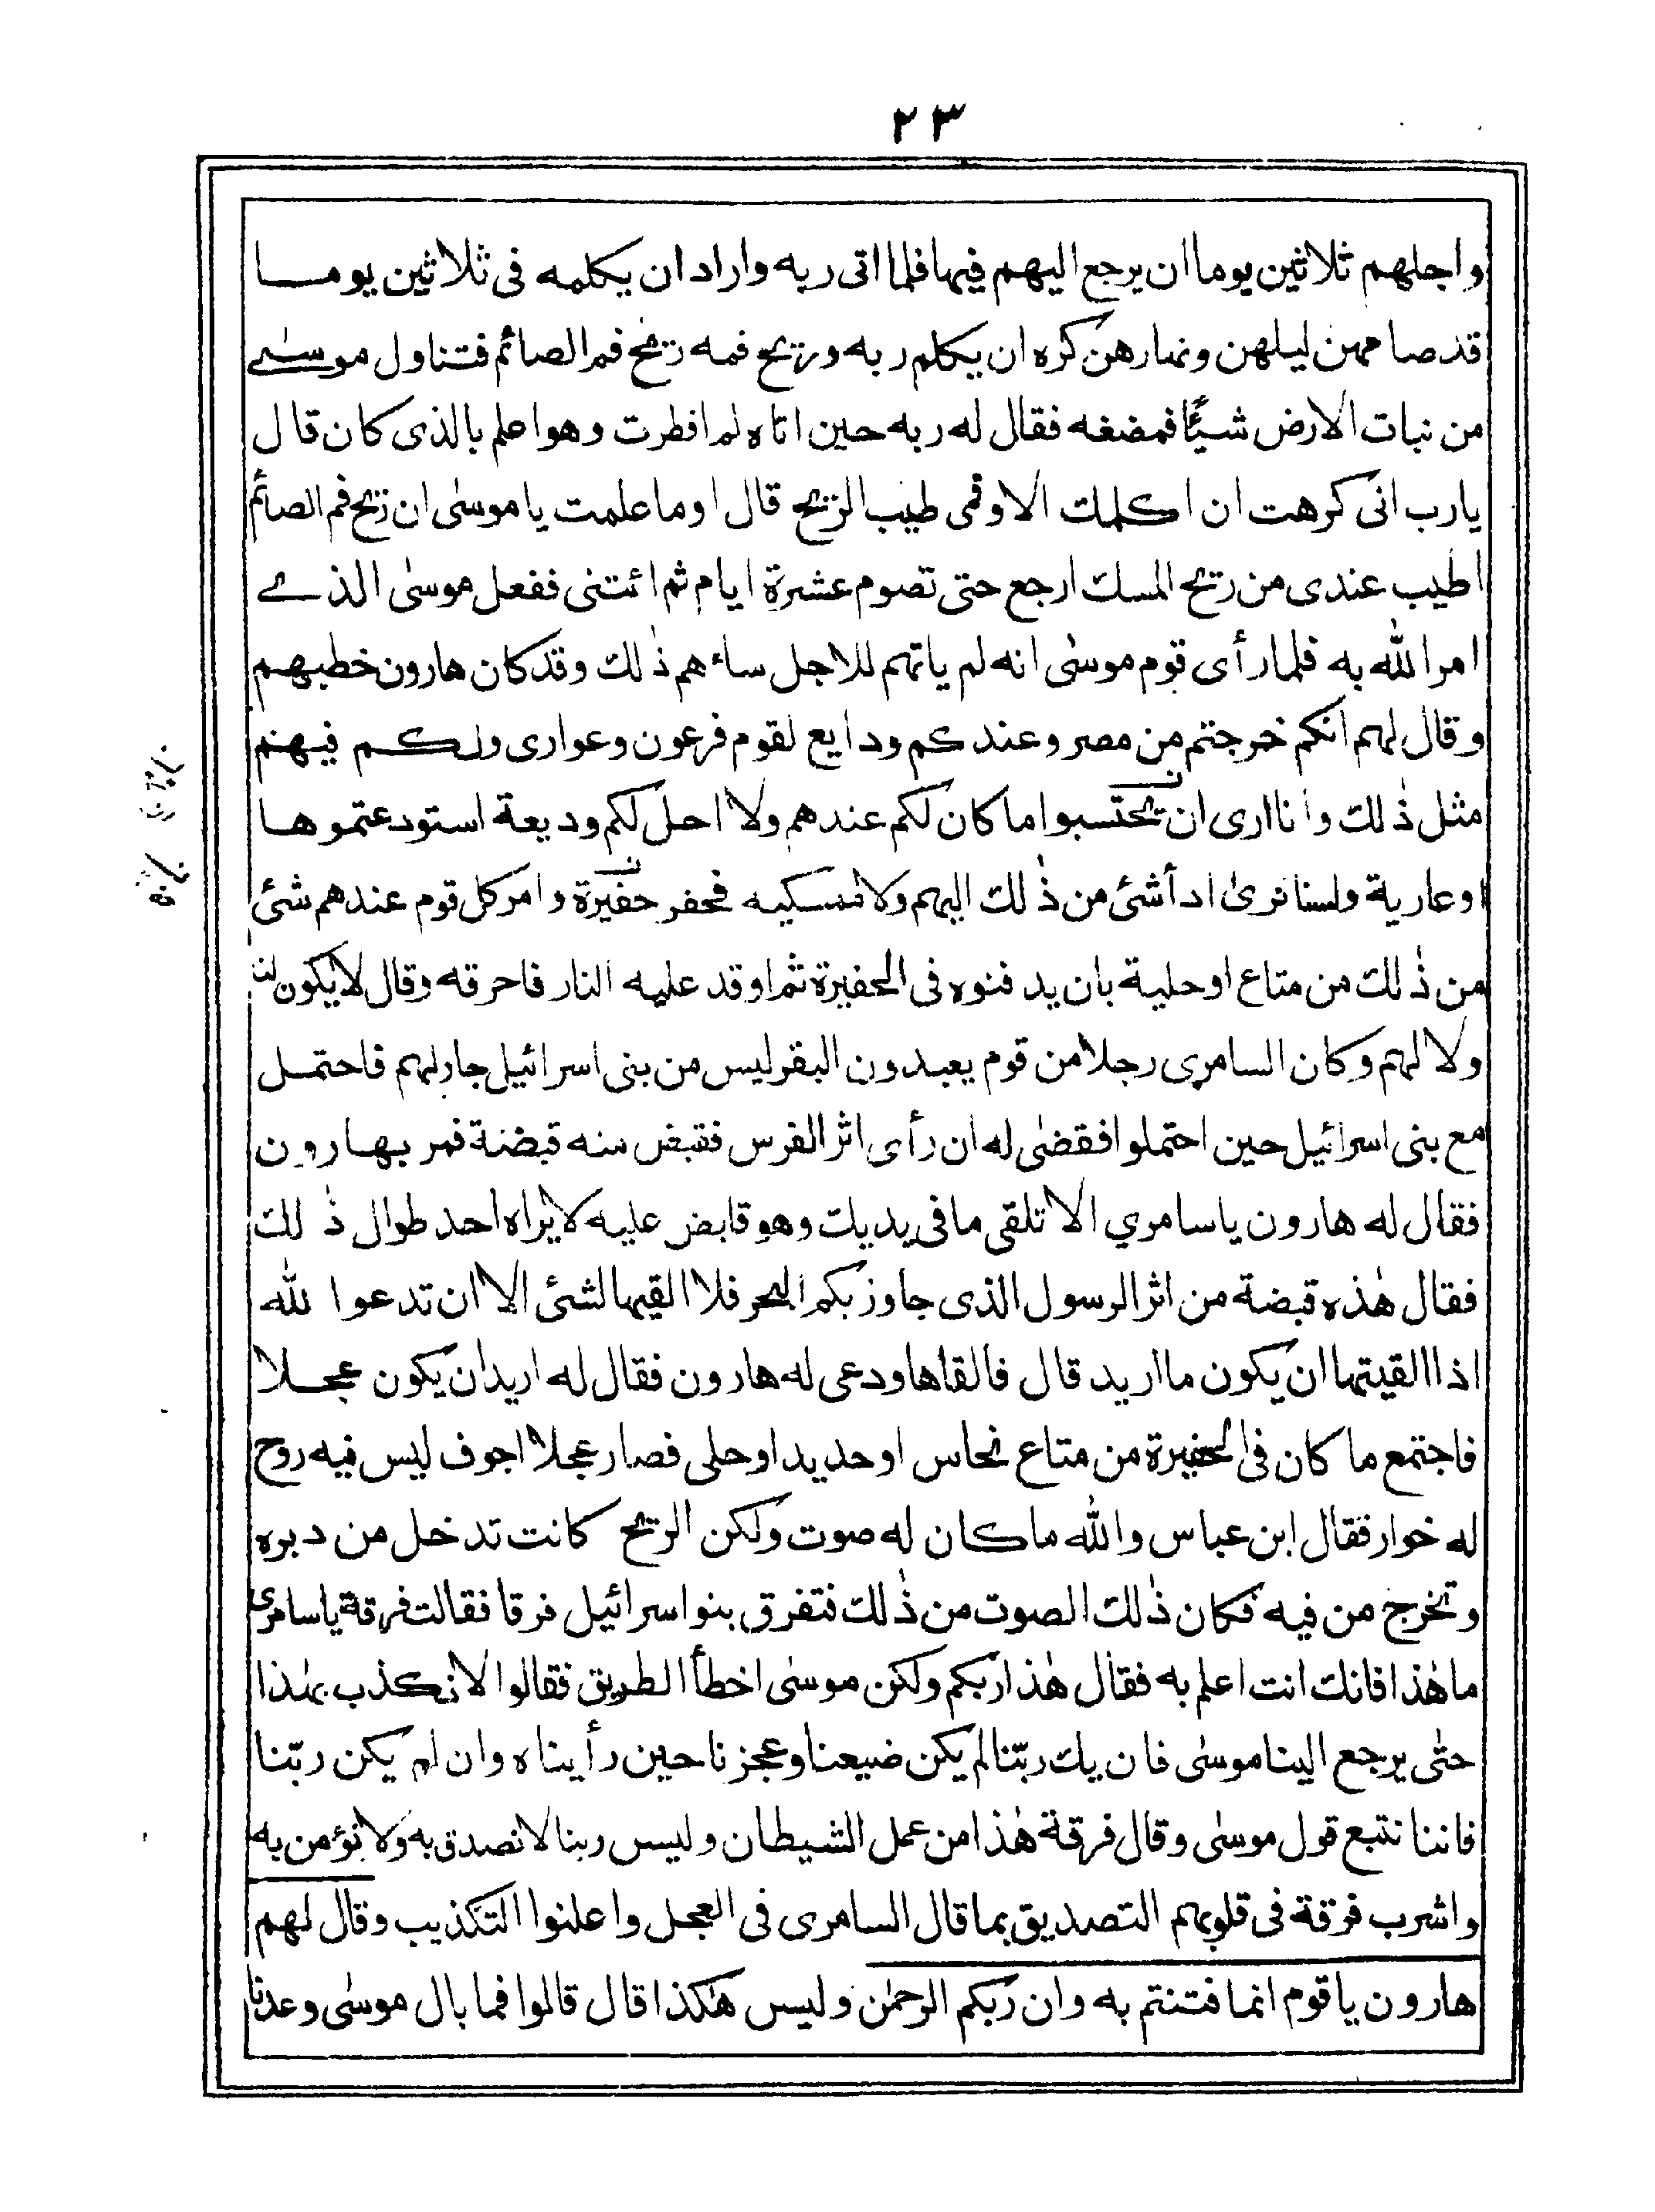 ٢٣
واجلهم ثلاثين يوما ان يرجع اليهم فيها فلما اتى ربه واراد ان يكلمه فى ثلاثين يوما
قد صامهن ليلهن ونهارهن كره ان يكلم ربه وريح فمه ريح فم الصائم فتناول موسى
من نبات الارض شيئًا فمضغه فقال له ربه حين اتاه لم افطرت وهو اعلم بالذى كان قال
يارب انى كرهت ان اكلمك الا وفمى طيب الريح قال اوما علمت يا موسٰى ان ريح فم الصائم
اطيب عندى من ريح المسك ارجع حتى تصوم عشرة ايام ثم ائتنى ففعل موسٰى الذى
امر الله به فلما رأى قوم موسٰى انه لم ياتهم للاجل ساءهم ذٰلك وقد كان هارون خطبهم
وقال لهم انكم خرجتم من مصر وعندكم ودايع لقوم فرعون وعوارى ولكم فيهم
مثل ذٰلك وانا ارى ان تحتسبوا ما كان لكم عندهم ولا احل لكم وديعة استودعتموها
او عارية ولسنا نرىٰ ادأ شئ من ذٰلك اليهم ولا ممسكيه فحفر حفيرة وامر كل قوم عندهم شئ
من ذٰلك من متاع او حلية بان يدفنوه فى الحفيرة ثم اوقد عليه النار فاحرقه وقال لا يكون لنا
ولا لهم وكان السامرى رجلا من قوم يعبدون البقر ليس من بنى اسرائيل جار لهم فاحتمل
مع بنى اسرائيل حين احتملوا فقضٰى له ان رأى اثر الفرس فقبض منه قبضة فمر بهارون
فقال له هارون يا سامري الا تلقى ما فى يديك وهو قابض عليه لا يراه احد طوال ذٰلك
فقال هٰذه قبضة من اثر الرسول الذى جاوز بكم البحر فلا القيها لشئ الا ان تدعوا لله
اذا القيتها ان يكون ما اريد قال فالقاها ودعى له هارون فقال له اريد ان يكون عجلا
فاجتمع ما كان فى الحفيرة من متاع نحاس او حديد او حلى فصار عجلا اجوف ليس فيه روح
له خوار فقال ابن عباس والله ما كان له صوت ولكن الريح كانت تدخل من دبره
وتخرج من فيه فكان ذٰلك الصوت من ذٰلك فتفرق بنو اسرائيل فرقا فقالت فرقة يا سامرى
ما هٰذا فانك انت اعلم به فقال هٰذا ربكم ولكن موسٰى اخطأ الطريق فقالوا لا نكذب بهٰذا
حتٰى يرجع الينا موسٰى فان يك ربّنا لم يكن ضيعنا وعجزنا حين رأيناه وان لم يكن ربّنا
فاننا نتبع قول موسٰى وقال فرقة هٰذا من عمل الشيطان وليس ربنا لا نصدق به ولا نؤمن به
واشرب فرقة فى قلوبهم التصديق بما قال السامرى فى العجل واعلنوا التكذيب وقال لهم
هارون يا قوم انما فتنتم به وان ربكم الرحمٰن وليس هٰكذا قال قالوا فما بال موسٰى وعدنا